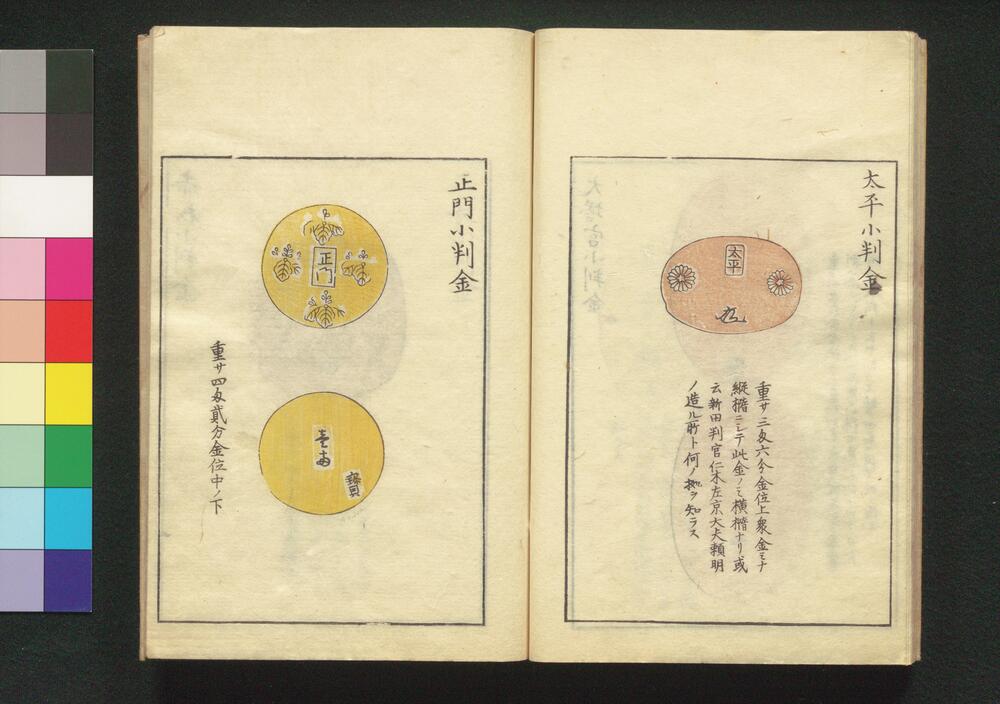 太平小判金
太平
重サ三匁六分金位上衆金ミナ
縦楕ニシテ此金ノミ横楕ナリ或
云新田判官仁木左京大夫頼明
ノ造ル所ト何ノ拠ヲ知ラス
正門小判金
正門
壱両
寶
重サ四匁貳分金位中ノ下